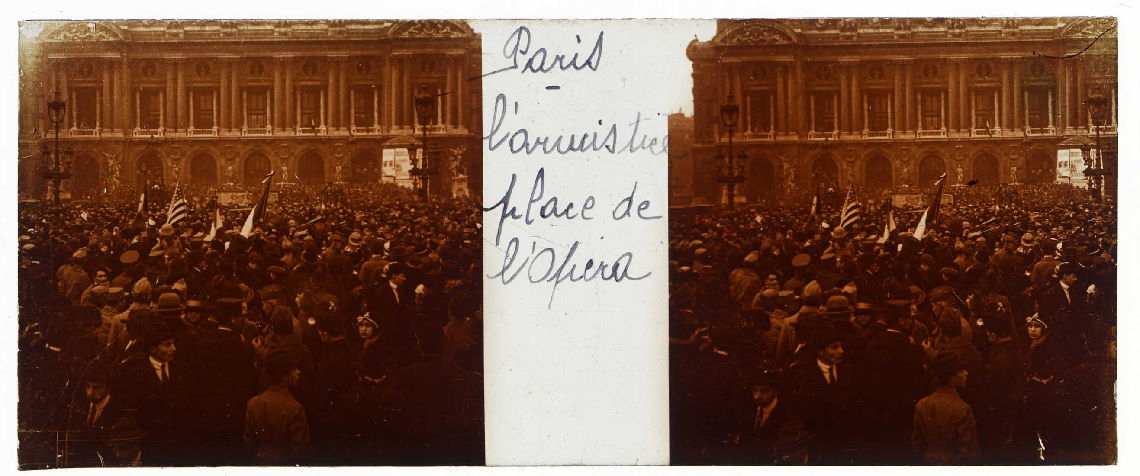 Paris
-
l'armistice
place de
l'Opéra